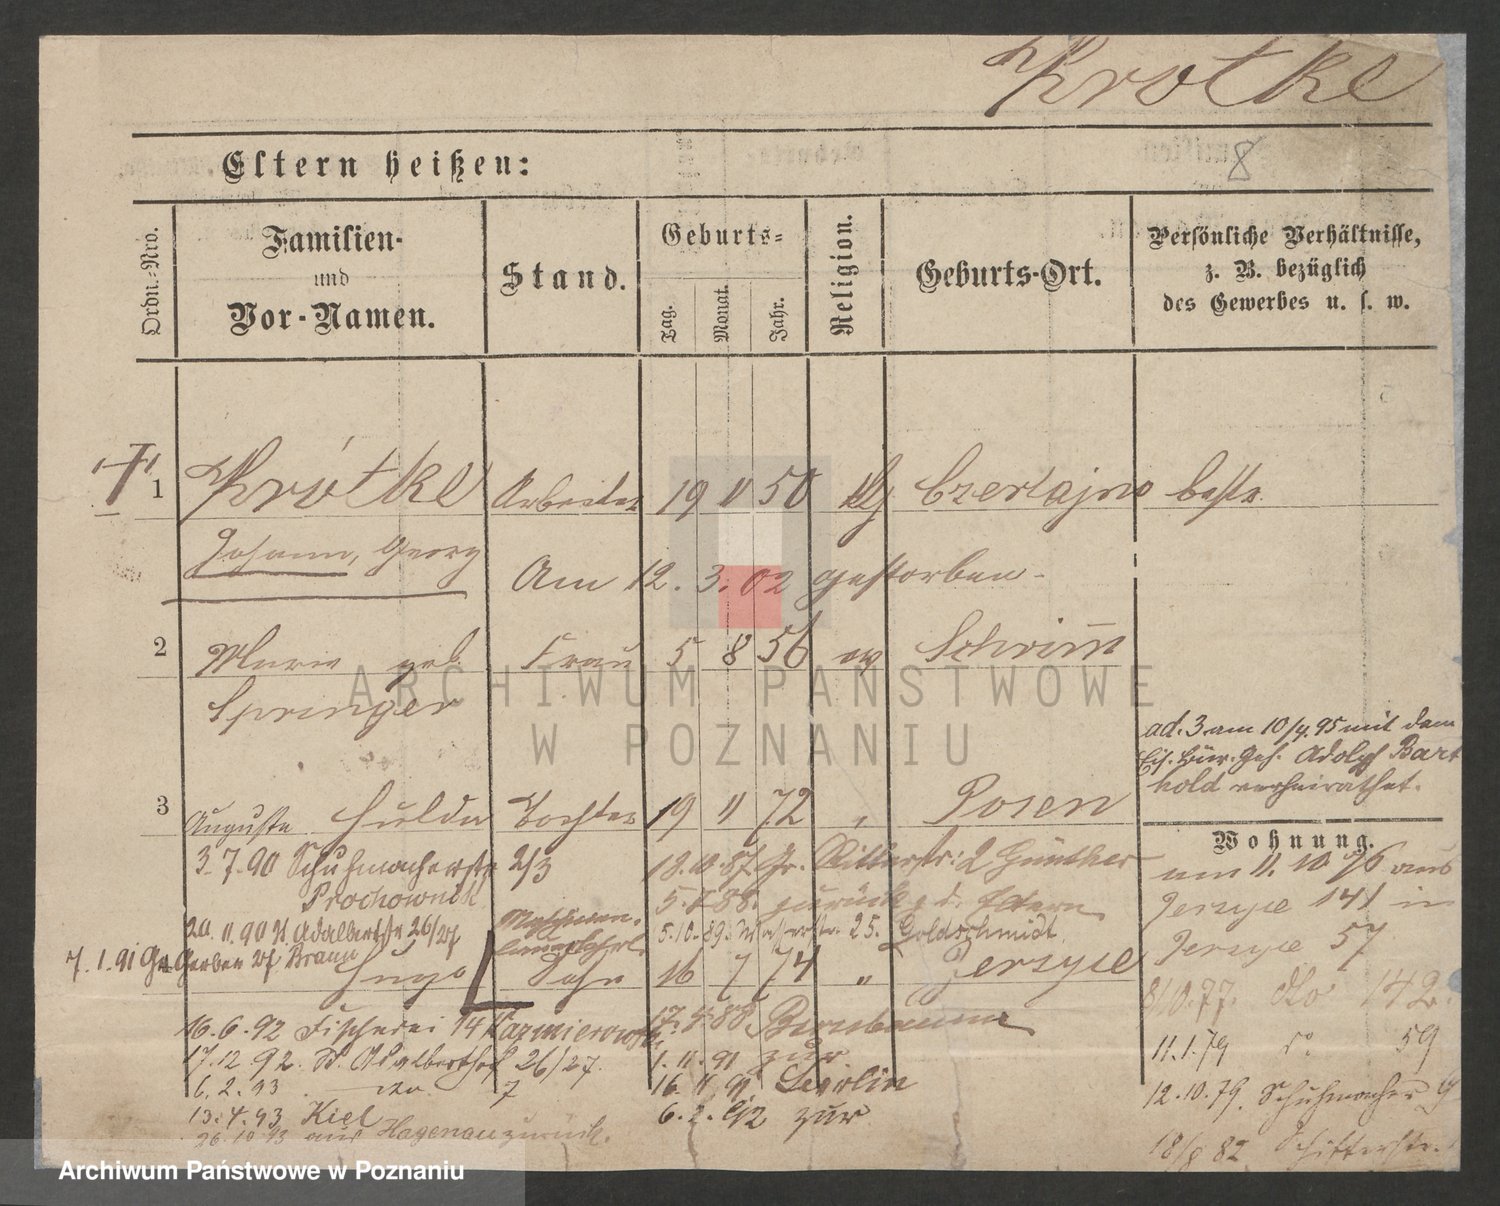 Krotke
8
Eltern heißen:
Ordn.-Nro.
Familien-
und
Vor-Namen.
Stand.
Geburts-
Tag.
Monat.
Jahr.
Religion.
Geburts-Ort.
Persönliche Verhältnisse,
z. B. bezüglich
des Gewerbes u. s. w.
1 Krótke Arbeiter 19 11 50 Czerlajno
Johann, Georg
Am 12. 3. 02 gestorben -
2 Marie geb. Frau 5 8 56 ev Schrimm
Springer
ad. 3 am 10/4. 95 mit dem
Adolph Bart
hold verheirathet.
3 Auguste Hulda Tochter 19 11 72 " Posen
Wohnung.
3.7.90 Schuhmacherstr 2/3
Prochownik
18.10.87 Gr. Ritterstr: 2 Günther
5. 88. zurück z. d. Eltern
5.10.89. 25. Goldschmidt
20.11.90 St. Adalbertstr 26/27
7.1.91 Gr. Gerber 27
Hugo Sohn 16 7 74 " Jersyce
am 11. 10 76 aus
Jersyce 141 in
Jersyce 57
8/10.77. dto 142.
11.1.79 59
12.10.79. Schuhmacher
18/8 82 Schifferstr.
16.6.92 Fischerei 14 Kazmierowski
17.12.92. St. Adalbertstr 26/27.
6.2.93 7
13.4.93 Kiel
26.10.93 aus Hagenau zurück.
88 Birnbaum
1.11.91 zur
16.11.91 Berlin
6.2.92 zur
ARCHIWUM PAŃSTWOWE
W POZNANIU
Archiwum Państwowe w Poznaniu